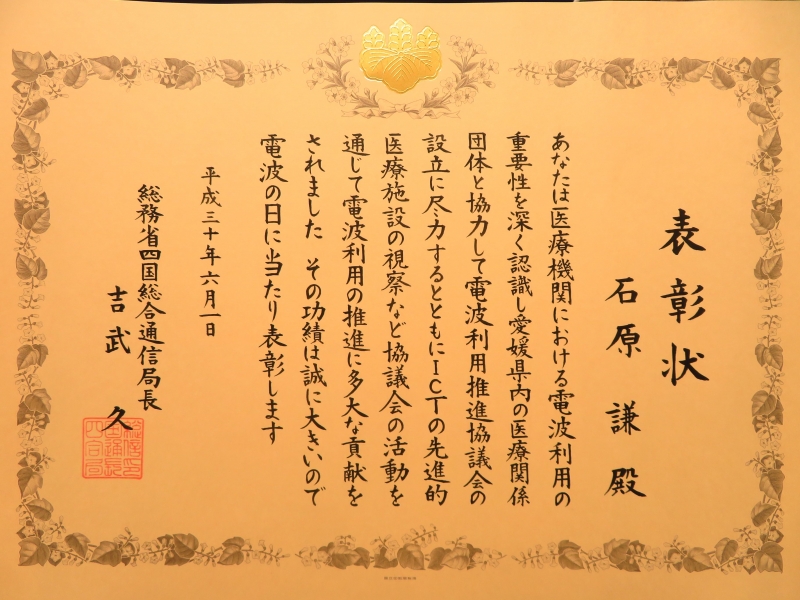 表彰状
石原 謙 殿
あなたは医療機関における電波利用の
重要性を深く認識し愛媛県内の医療関係
団体と協力して電波利用推進協議会の
設立に尽力するとともにICTの先進的
医療施設の視察など協議会の活動を
通じて電波利用の推進に多大な貢献を
されました その功績は誠に大きいので
電波の日に当たり表彰します
平成三十年六月一日
総務省四国総合通信局長
吉武 久